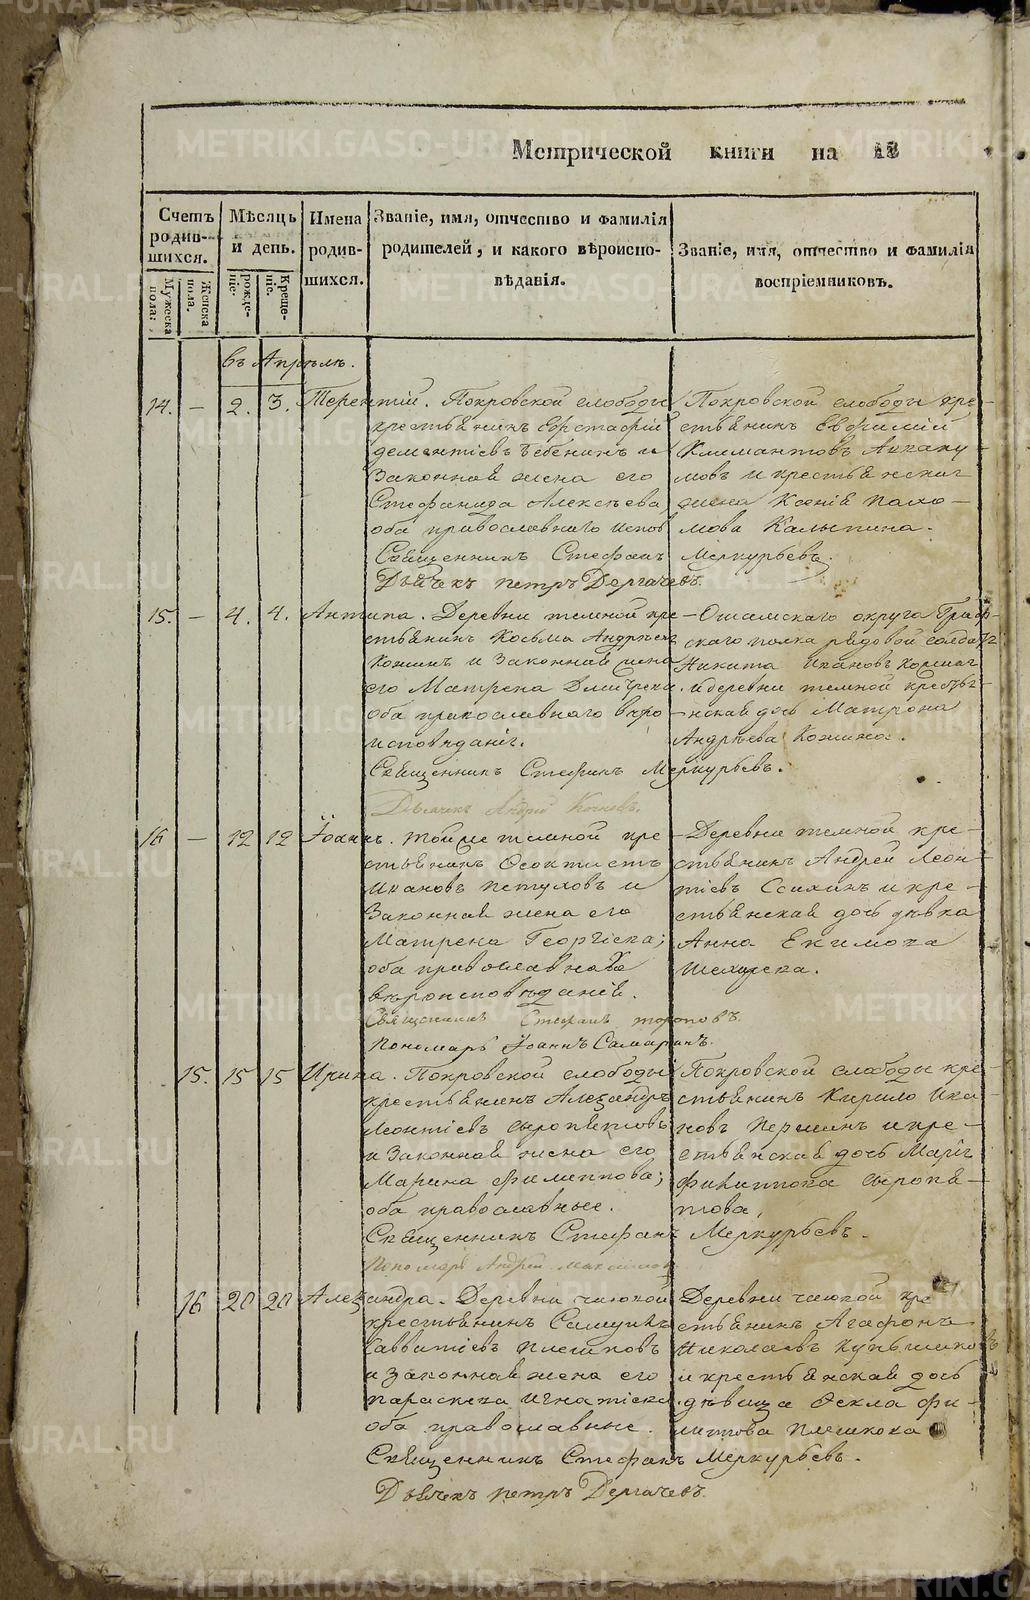 Метрической книги на 18
Счетъ родив-шихся.
Мужеска пола.
Женска пола.
Мѣсяцъ и день.
рожде-ніе.
Креще-ніе.
Имена родив-шихся.
Званіе, имя, отчество и фамилія
родителей, и какого вѣроиспо-
вѣданія.
Званіе, имя, отчество и фамилія
воспріемниковъ.
въ Апрѣлѣ.
14. — 2. 3. Терентій. Покровской слободы
крестьянинъ Евстафій
дементіевъ Бебенинъ и
Законная жена его
Стефанида Алексѣева,
оба православнаго испов
Священникъ Стефанъ Меркурьевъ.
Дьячекъ петръ Дергачевъ.
Покровской слободы кре-
стьянинъ Евфимій
Климантовъ Аввакумовъ и крестьянская
жена Ксенія Пахо-
мова Калыгина.
15. — 4. 4. Антипа. Деревни темной кре-
стьянинъ Косьма Андреевъ
Кожинъ и Законная жена
его Матрена
оба православнаго вѣро
исповѣданія.
Священникъ Стефанъ Меркурьевъ.
Дьячекъ Андрей
округа
скаго полка рядовой солдатъ
Никита Ивановъ
и деревни темной крестья-
нская дочь Матрона
Андреева Кожина.
16 — 12 12 Іоаннъ. Тойже темной кре-
стьянинъ Феоктистъ
Ивановъ петуховъ и
Законная жена его
Матрена Георгіева;
оба православнаго
вѣроисповѣданія.
Священникъ Стефанъ топоровъ.
Пономарь Іоаннъ Самаринъ.
Деревни темной кре-
стьянинъ Андрей Леон-
тіевъ и кре-
стьянская дочь дѣвка
Анна Екимова
15. 15 15 Ирина. Покровской слободы
крестьянинъ Александръ
Леонтіевъ Сыропятовъ
и Законная жена его
Марина филиппова;
оба православные.
Священникъ Стефанъ Меркурьевъ.
Пономарь Андрей
Покровской слободы кре-
стьянинъ Кирило Ива-
новъ Першинъ и кре-
стьянская дочь Марія
Филиппова Сыропя-
това,
16 20 20 Александра. Деревни
крестьянинъ
Савватіевъ плешковъ
и Законная жена его
параскева Игнатіева
оба православные.
Священникъ Стефанъ Меркурьевъ.
Дьячекъ петръ Дергачевъ.
Деревни кре
стьянинъ Агафонъ
Николаевъ
и крестьянская дочь
дѣвица Фекла фи-
липова Плешкова
METRIKI.GASO-URAL.RU